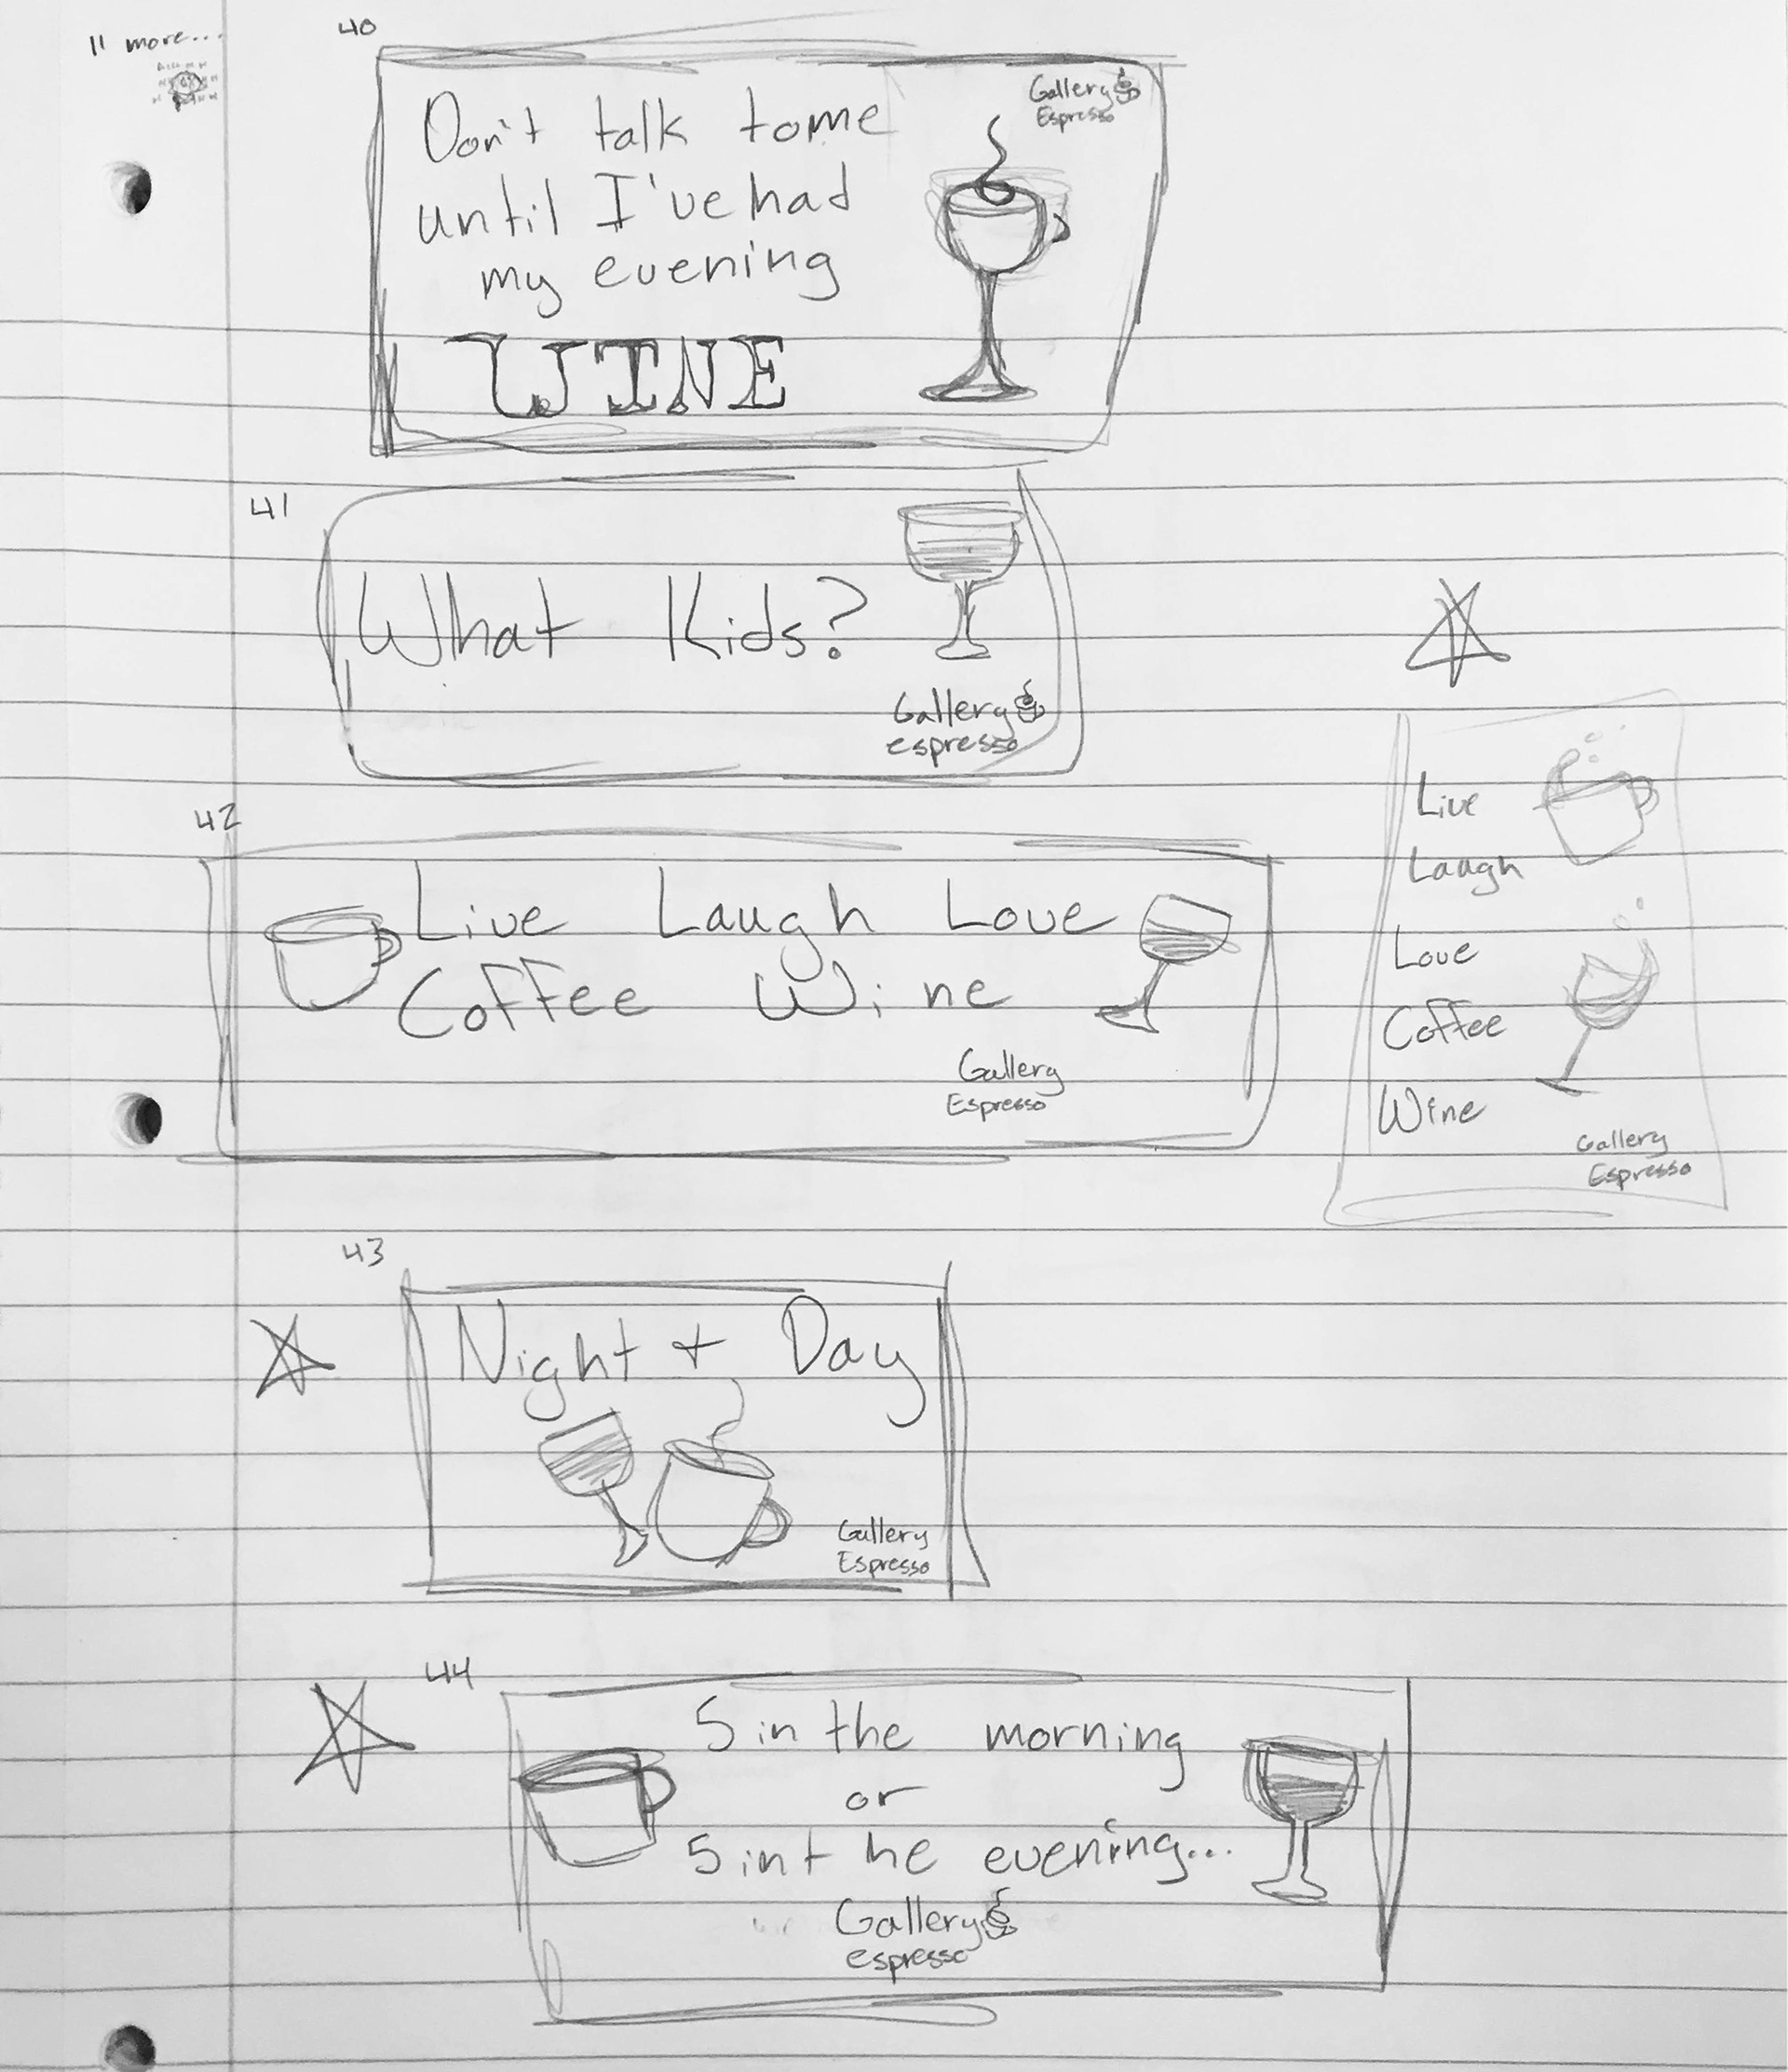 11 more...
40
Don't talk to me
until I've had
my evening
WINE
Gallery
Espresso
41
What Kids?
Gallery
espresso
42
Live Laugh Love
Coffee Wine
Gallery
Espresso
Live
Laugh
Love
Coffee
Wine
Gallery
Espresso
43
Night + Day
Gallery
Espresso
44
5 in the morning
or
5 in the evening...
Gallery
espresso